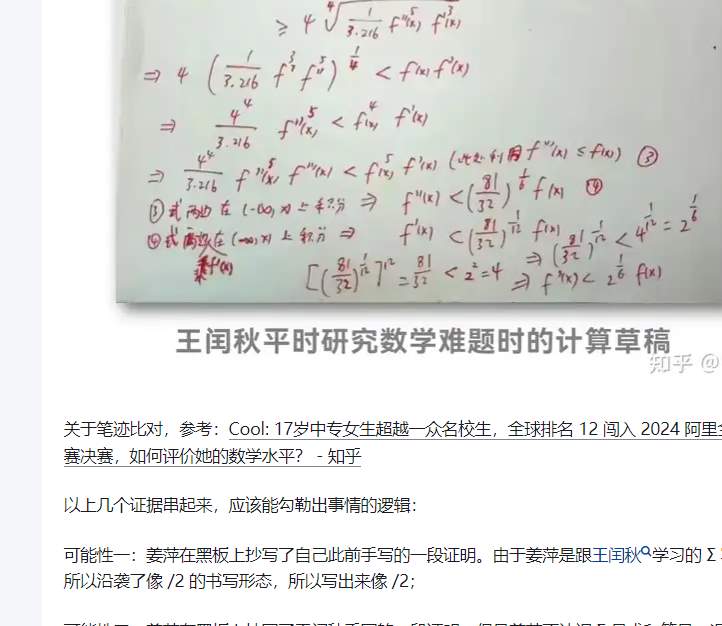 ≥ 4 ⁴√(1/3.216 f''⁵(x) f'³(x))
⇒ 4 (1/3.216 f'³ f''⁵)^(1/4) < f(x) f'(x)
⇒ 4⁴/3.216 f''⁵(x) < f⁴(x) f'(x)
⇒ 4⁴/3.216 f''⁵(x) f'''(x) < f⁵(x) f'(x) (此处利用 f'''(x) ≤ f(x)) ③
③式两边在 (-∞, x) 上积分 ⇒ f''(x) < (81/32)^(1/6) f(x) ④
④式两边在 (-∞, x) 上积分 ⇒ f'(x) < (81/32)^(1/12) f(x) ⇒ (81/32)^(1/12) < 4^(1/12) = 2^(1/6)
乘f'(x)
[(81/32)^(1/12)]¹² = 81/32 < 2² = 4 ⇒ f'(x) < 2^(1/6) f(x)
王闰秋平时研究数学难题时的计算草稿
知乎 @
关于笔迹比对，参考：Cool: 17岁中专女生超越一众名校生，全球排名 12 闯入 2024 阿里
赛决赛，如何评价她的数学水平？ - 知乎
以上几个证据串起来，应该能勾勒出事情的逻辑：
可能性一：姜萍在黑板上抄写了自己此前手写的一段证明。由于姜萍是跟王闰秋学习的 Σ
所以沿袭了像 /2 的书写形态，所以写出来像 /2；